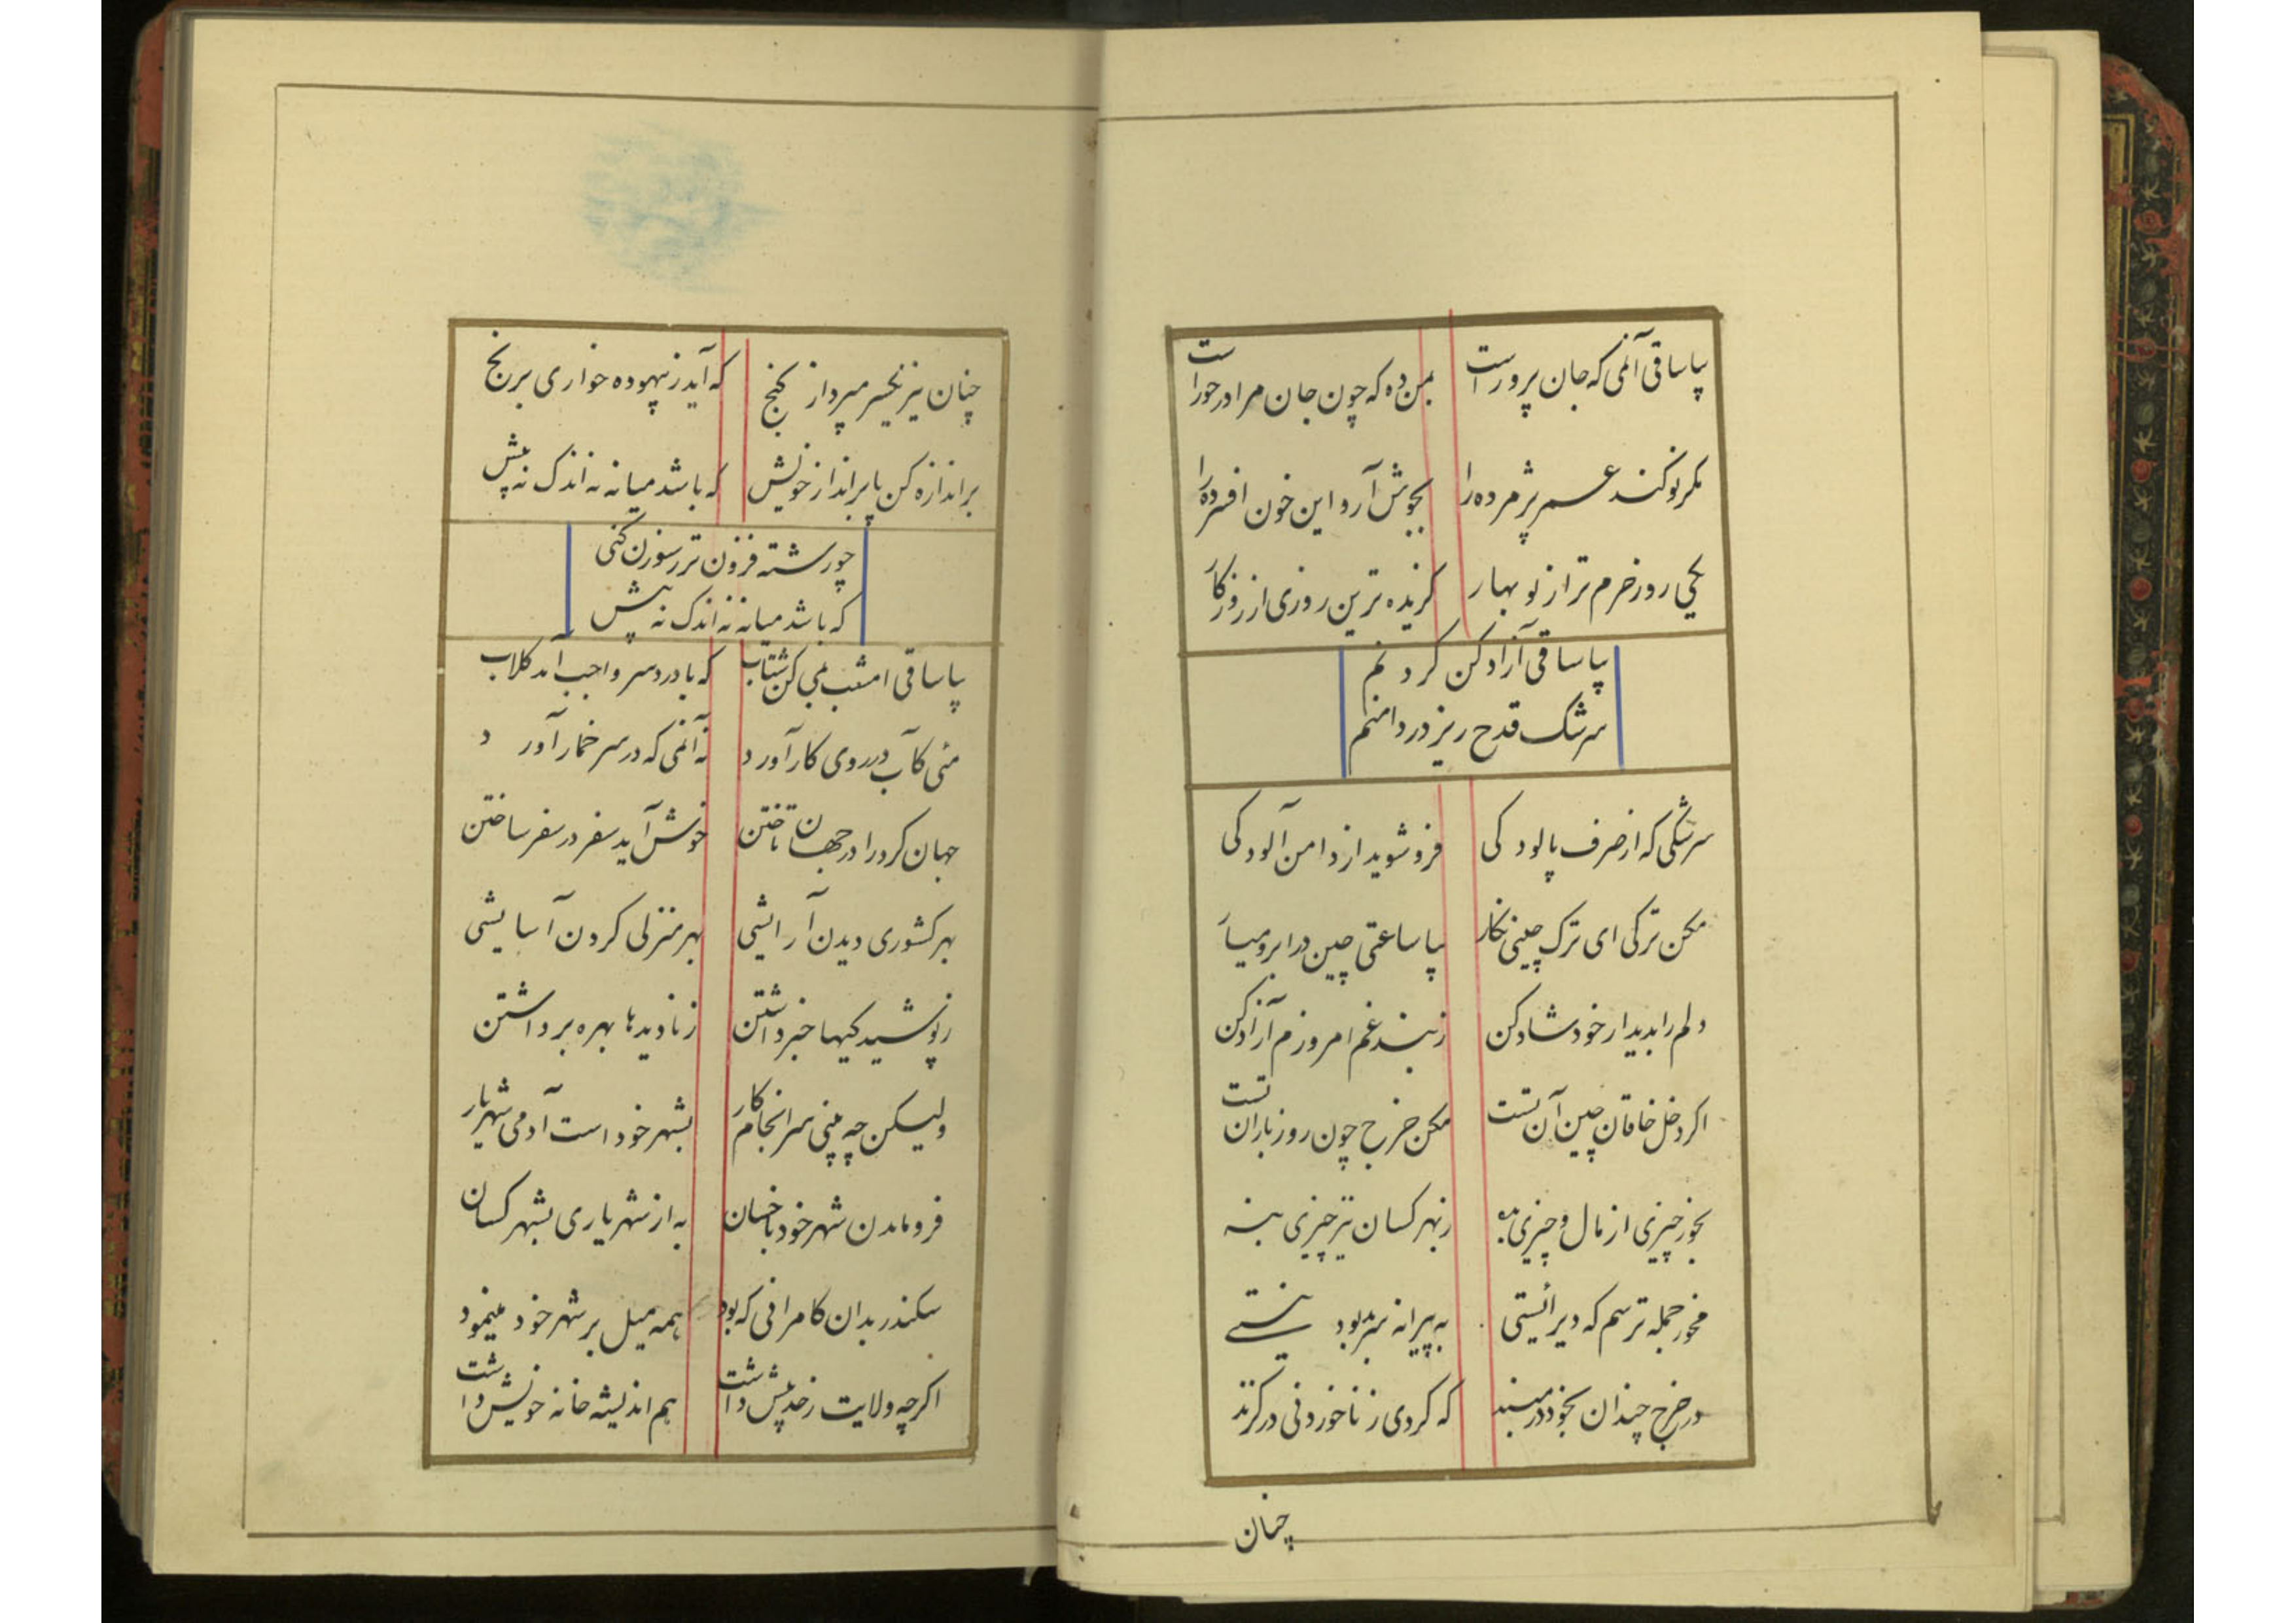 بیا ساقی آن می که جان پرور است بمن ده که چون جان مرا در خور است
مکر نو کند عمر پژمرده را بجوش آرد این خون افسرده را
یکی روز خرم تر از نو بهار کزیده ترین روزی از روزکار
بیا ساقی آزاد کن کردنم
سرشک قدح ریز در دامنم
سرشکی که از صرف پالودکی فرو شوید از دامن آلودکی
مکن ترکی ای ترک چینی نکار بیا ساعتی چین در ابرو میار
دلم را بدیدار خود شاد کن ز بند غم امروزم آزاد کن
اکر دخل خاقان چین آن تست مکن خرج چون روز باران تست
بخور چیزی از مال و چیزی بده ز بهر کسان نیز چیزی بنه
مخور جمله ترسم که دیر ایستی به پیرانه سر بد بود نیستی
در خرج چندان بخود در مبند که کردی ز ناخوردنی در کزند
چنان
چنان نیز یکسر مپرداز کنج که آید ز بیهوده خواری برنج
بر اندازه کن بر انداز خویش که باشد میانه نه اندک نه بیش
چو رشته فزون تر ز سوزن کنی
که باشد میانه نه اندک نه بیش
بیا ساقی امشب بمی کن شتاب که با درد سر واجب آمد کلاب
مئی کآب در روی کار آورد نه آن می که در سر خمار آورد
جهان کرد را در جهان تاختن خوش آید سفر در سفر ساختن
بهر کشوری دیدن آرایشی بهر منزلی کردن آسایشی
ز پوشیدکیها خبر داشتن ز نادیدها بهره برداشتن
ولیکن چه بینی سرانجام کار بشهر خود است آدمی شهریار
فرو ماندن شهر خود با خسان به از شهریاری بشهر کسان
سکندر بدان کامرانی که بود همه میل بر شهر خود مینمود
اکرچه ولایت ز حد بیش داشت هم اندیشه خانه خویش داشت